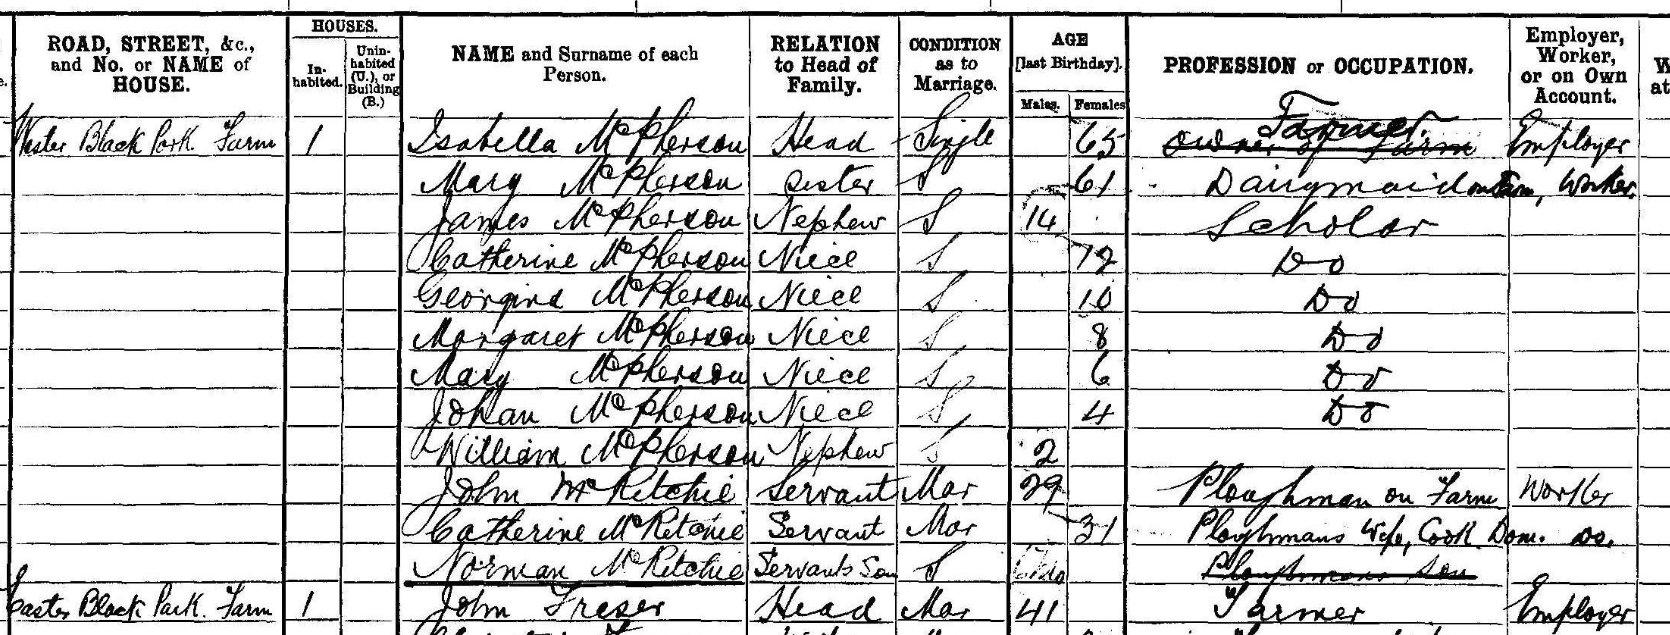 HOUSES.
ROAD, STREET, &c., and No. or NAME of HOUSE. In-habited. Unin-habited (U.), or Building (B.) NAME and Surname of each Person. RELATION to Head of Family. CONDITION as to Marriage. AGE [last Birthday]. Males. Females PROFESSION or OCCUPATION. Employer, Worker, or on Own Account. W at
Farmer.
Wester Black Park Farm 1 Isabella McPherson Head Single 65 Owner of Farm Employer
Mary McPherson Sister S 61 Dairymaid on Farm, Worker.
James McPherson Nephew S 14 Scholar
Catherine McPherson Niece S 12 Do
Georgina McPherson Niece S 10 Do
Margaret McPherson Niece S 8 Do
Mary McPherson Niece S 6 Do
Johan McPherson Niece S 4 Do
William McPherson Nephew S 2
John McRitchie Servant Mar 29 Ploughman on Farm Worker
Catherine McRitchie Servant Mar 31 Ploughmans Wife, Cook Dom. do.
Norman McRitchie Servants Son S Ploughmans Son
Easter Black Park Farm 1 John Fraser Head Mar 41 Farmer Employer